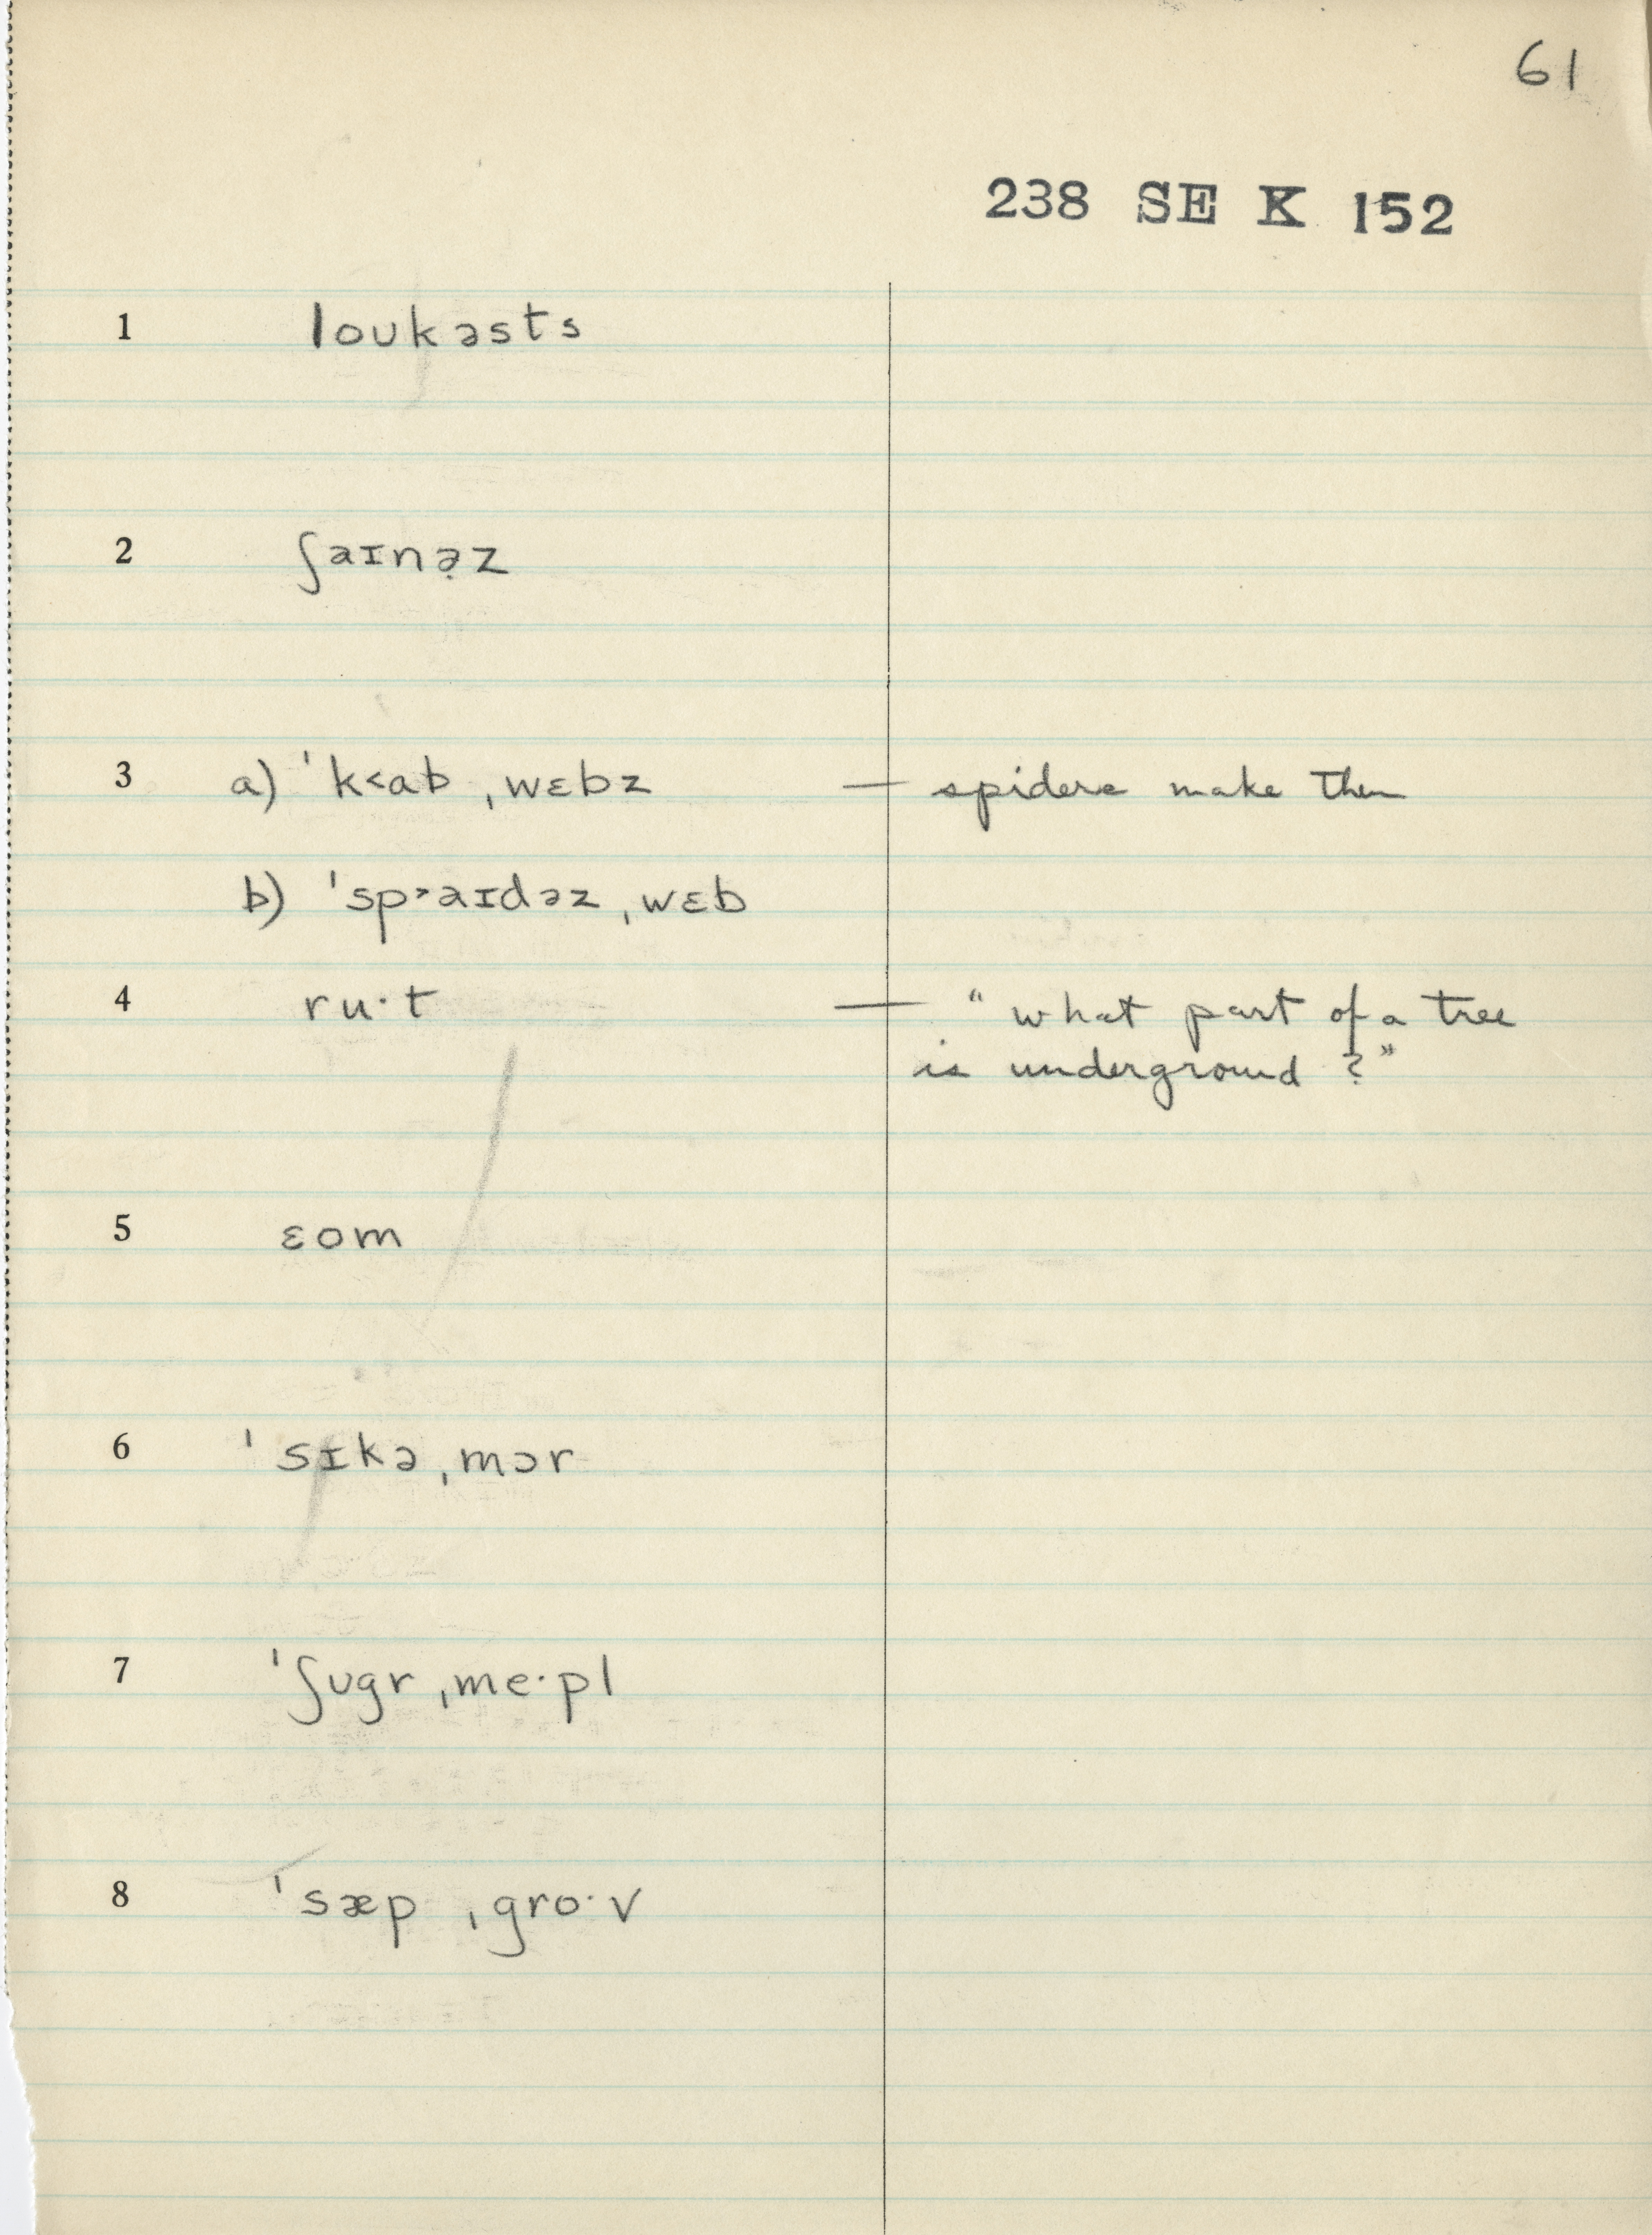 61
238 SE K 152
1 loʊkəsts
2 ʃaɪnə̣z
3 a) ˈk˂ab ˌwɛbz — spiders make them
b) ˈsp˃aɪdəz ˌwɛb
4 ru·t — "what part of a tree
is underground?"
5 ɛom
6 ˈsɪkə ˌmɔr
7 ˈʃʊgr ˌme·pl
8 ˈsæp ˌgro·v